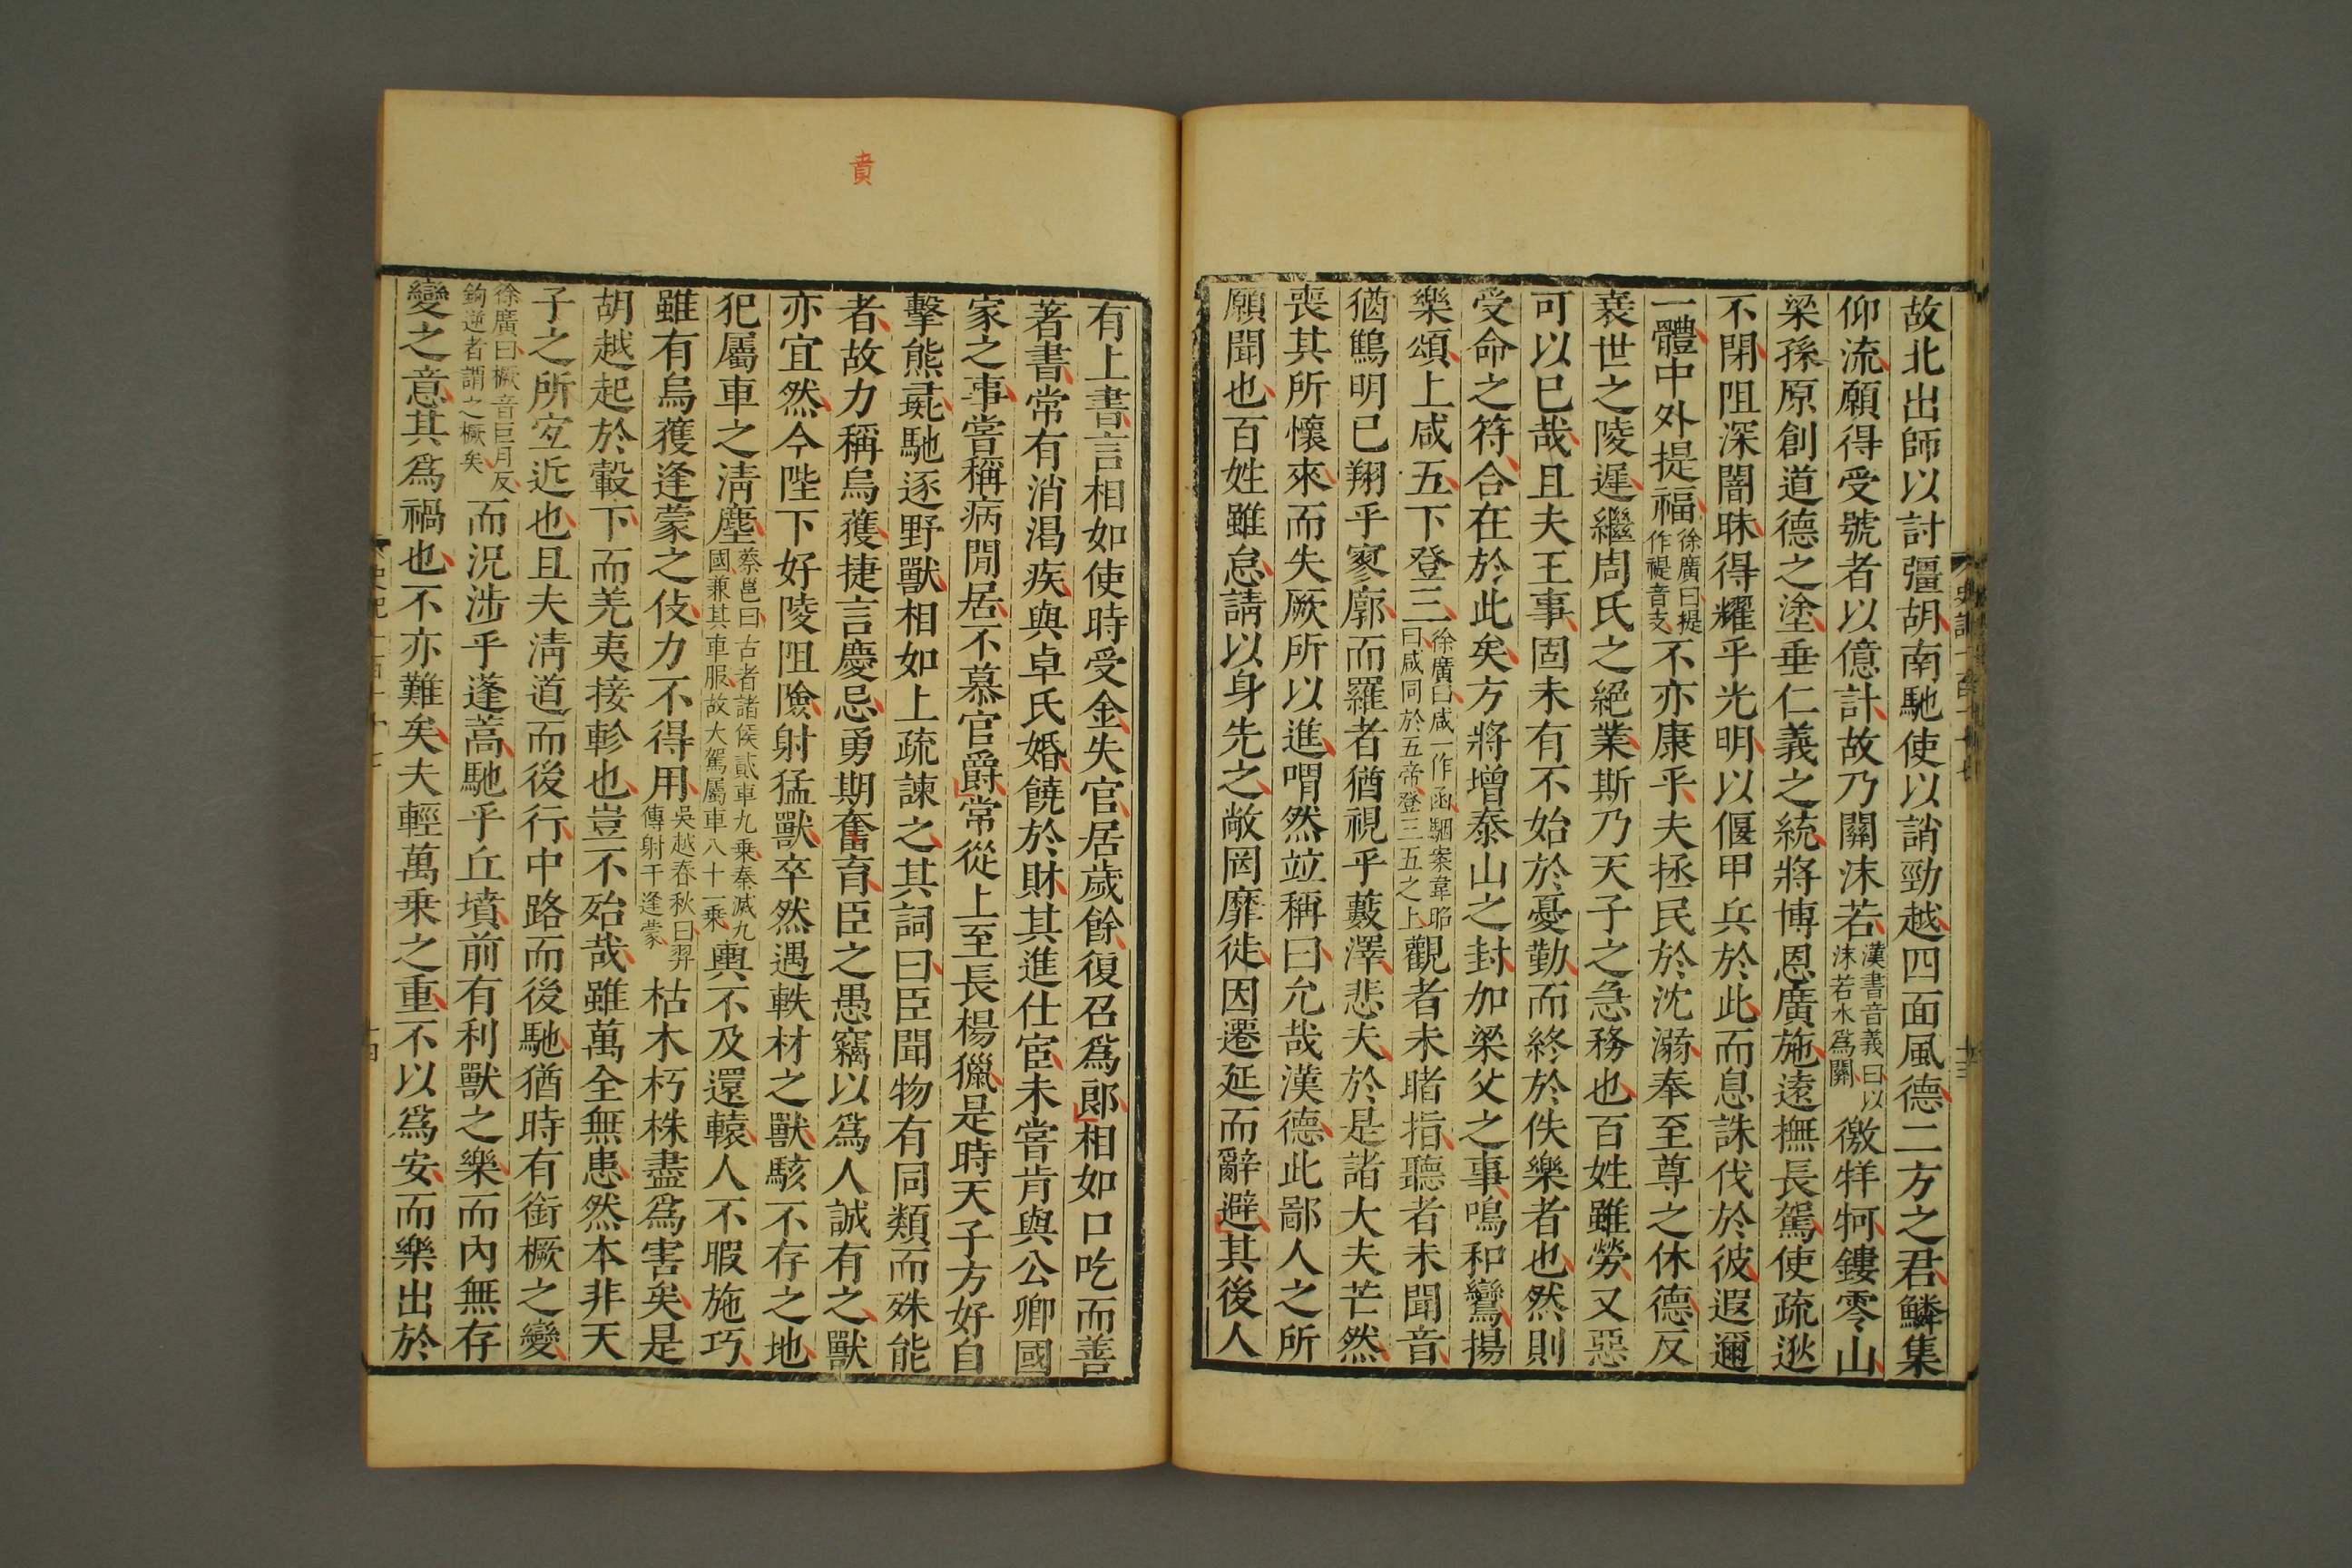 故北出師以討彊胡南馳使以誚勁越四面風德二方之君鱗集
仰流願得受號者以億計故乃關沬若漢書音義曰以沬若水爲關徼牂牁鏤零山
梁孫原創道德之塗垂仁義之統將博恩廣施遠撫長駕使疏逖
不閉阻深闇昧得耀乎光明以偃甲兵於此而息誅伐於彼遐邇
一體中外提福徐廣曰提作禔音支不亦康乎夫拯民於沈溺奉至尊之休德反
衰世之陵遲繼周氏之絕業斯乃天子之急務也百姓雖勞又惡
可以已哉且夫王事固未有不始於憂勤而終於佚樂者也然則
受命之符合在於此矣方將增泰山之封加梁父之事鳴和鸞揚
樂頌上咸五下登三徐廣曰咸一作函駰案韋昭曰咸同於五帝登三五之上觀者未睹指聽者未聞音
猶鷦明已翔乎寥廓而羅者猶視乎藪澤悲夫於是諸大夫芒然
喪其所懷來而失厥所以進喟然竝稱曰允哉漢德此鄙人之所
願聞也百姓雖怠請以身先之敞罔靡徙因遷延而辭避其後人
有上書言相如使時受金失官居歲餘復召爲郎相如口吃而善
著書常有消渴疾與卓氏婚饒於財其進仕宦未嘗肯與公卿國
家之事嘗稱病閒居不慕官爵常從上至長楊獵是時天子方好自
擊熊彘馳逐野獸相如上疏諫之其詞曰臣聞物有同類而殊能
者故力稱烏獲捷言慶忌勇期奮育臣之愚竊以爲人誠有之獸
亦宜然今陛下好陵阻險射猛獸卒然遇軼材之獸駭不存之地
犯屬車之淸塵蔡邕曰古者諸侯貳車九乗秦滅九國兼其車服故大駕屬車八十一乗輿不及還轅人不暇施巧
雖有烏獲逢蒙之伎力不得用吳越春秋曰羿傳射于逢蒙枯木朽株盡爲害矣是
胡越起於轂下而羌夷接軫也豈不殆哉雖萬全無患然本非天
子之所宜近也且夫淸道而後行中路而後馳猶時有銜橛之變
徐廣曰橛音巨月反鉤逆者謂之橛矣而況涉乎蓬蒿馳乎丘墳前有利獸之樂而內無存
變之意其爲禍也不亦難矣夫輕萬乗之重不以爲安而樂出於
賁